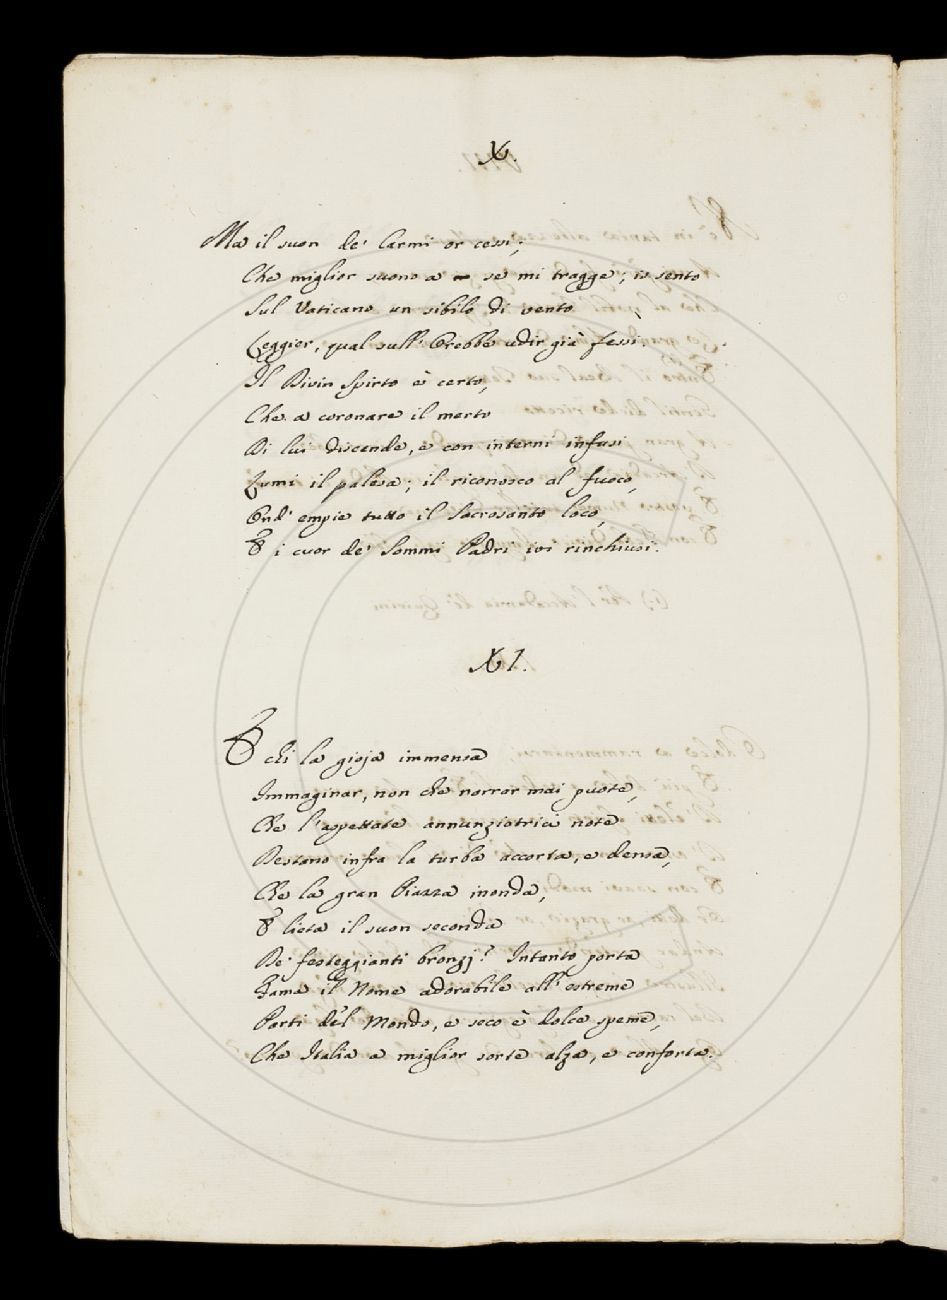 X.
Ma il suon de' Carmi or cessi;
Che miglior suono a se mi tragge; io sento
Sul Vaticano un sibilo di vento
Leggier, qual sull' Orebbe udir già fessi,
Il Divin Spirto è certo,
Che a coronare il merto
Di lui discende, e con interni infusi
Lumi il palesa; il riconosco al fuoco,
Ond' empie tutto il Sacrosanto loco,
E i cuor de' Sommi Padri ivi rinchiusi.
XI.
E chi la gioja immensa
Immaginar, non che narrar mai puote,
Che l'aspettate annunziatrici note
Destano infra la turba accorta, e densa,
Che la gran Piazza inonda,
E lieta il suon seconda
De' festeggianti bronzj? Intanto porta
Fama il Nome adorabile all' estreme
Parti del Mondo, e seco è dolce speme,
Che Italia a miglior sorte alza, e conforta.